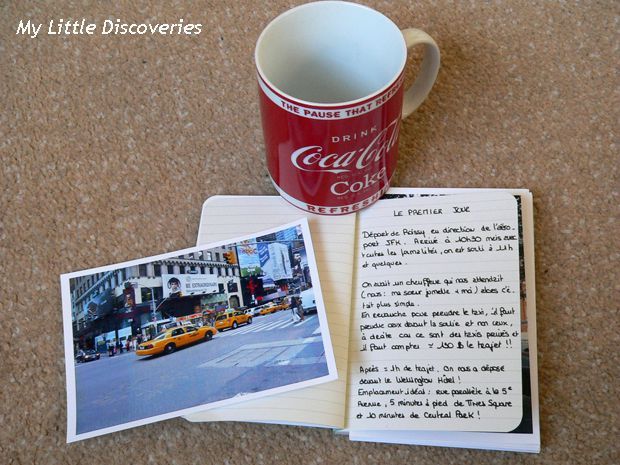 My Little Discoveries
THE PAUSE THAT REFRE
DRINK
Coca-Cola
Coke
REFRESHI
LE PREMIER JOUR
Départ de Roissy en direction de l'aéro-
port JFK. Arrivé à 10h30 mais avec
toutes les formalités, on est sorti à 11h
et quelques.
On avait un chauffeur qui nous attendait
(nous : ma sœur jumelle + moi) alors c'é-
tait plus simple.
En revanche pour prendre le taxi, il faut
prendre ceux devant la sortie et non ceux,
à droite car ce sont des taxis privés et
il faut compter = 130 $ le trajet !!
Après = 1h de trajet, on nous a déposé
devant le Wellington Hôtel !
Emplacement idéal : rue parallèle à la 5e
Avenue, 5 minutes à pied de Times Square
et 10 minutes de Central Park !